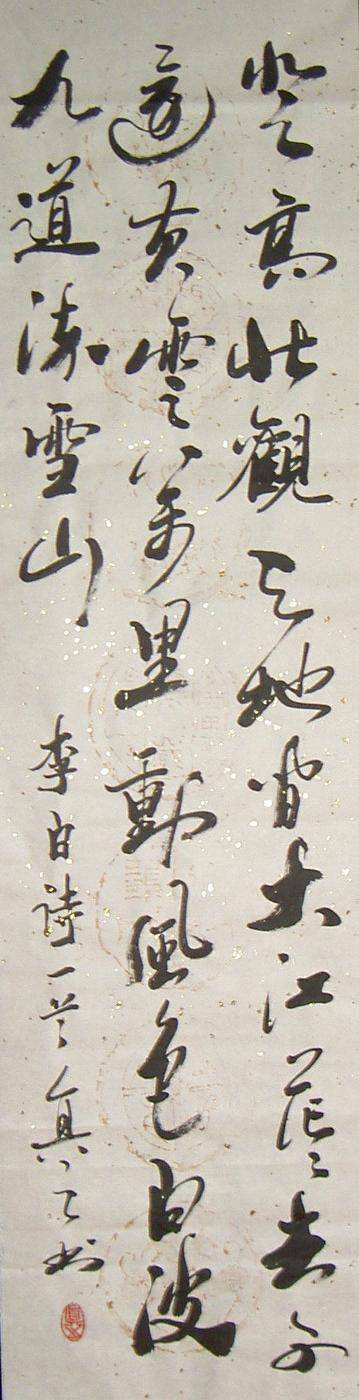 登高壮觀天地間大江茫茫去不
還黄雲萬里動風色白波
九道流雪山
李白詩一首 真之書